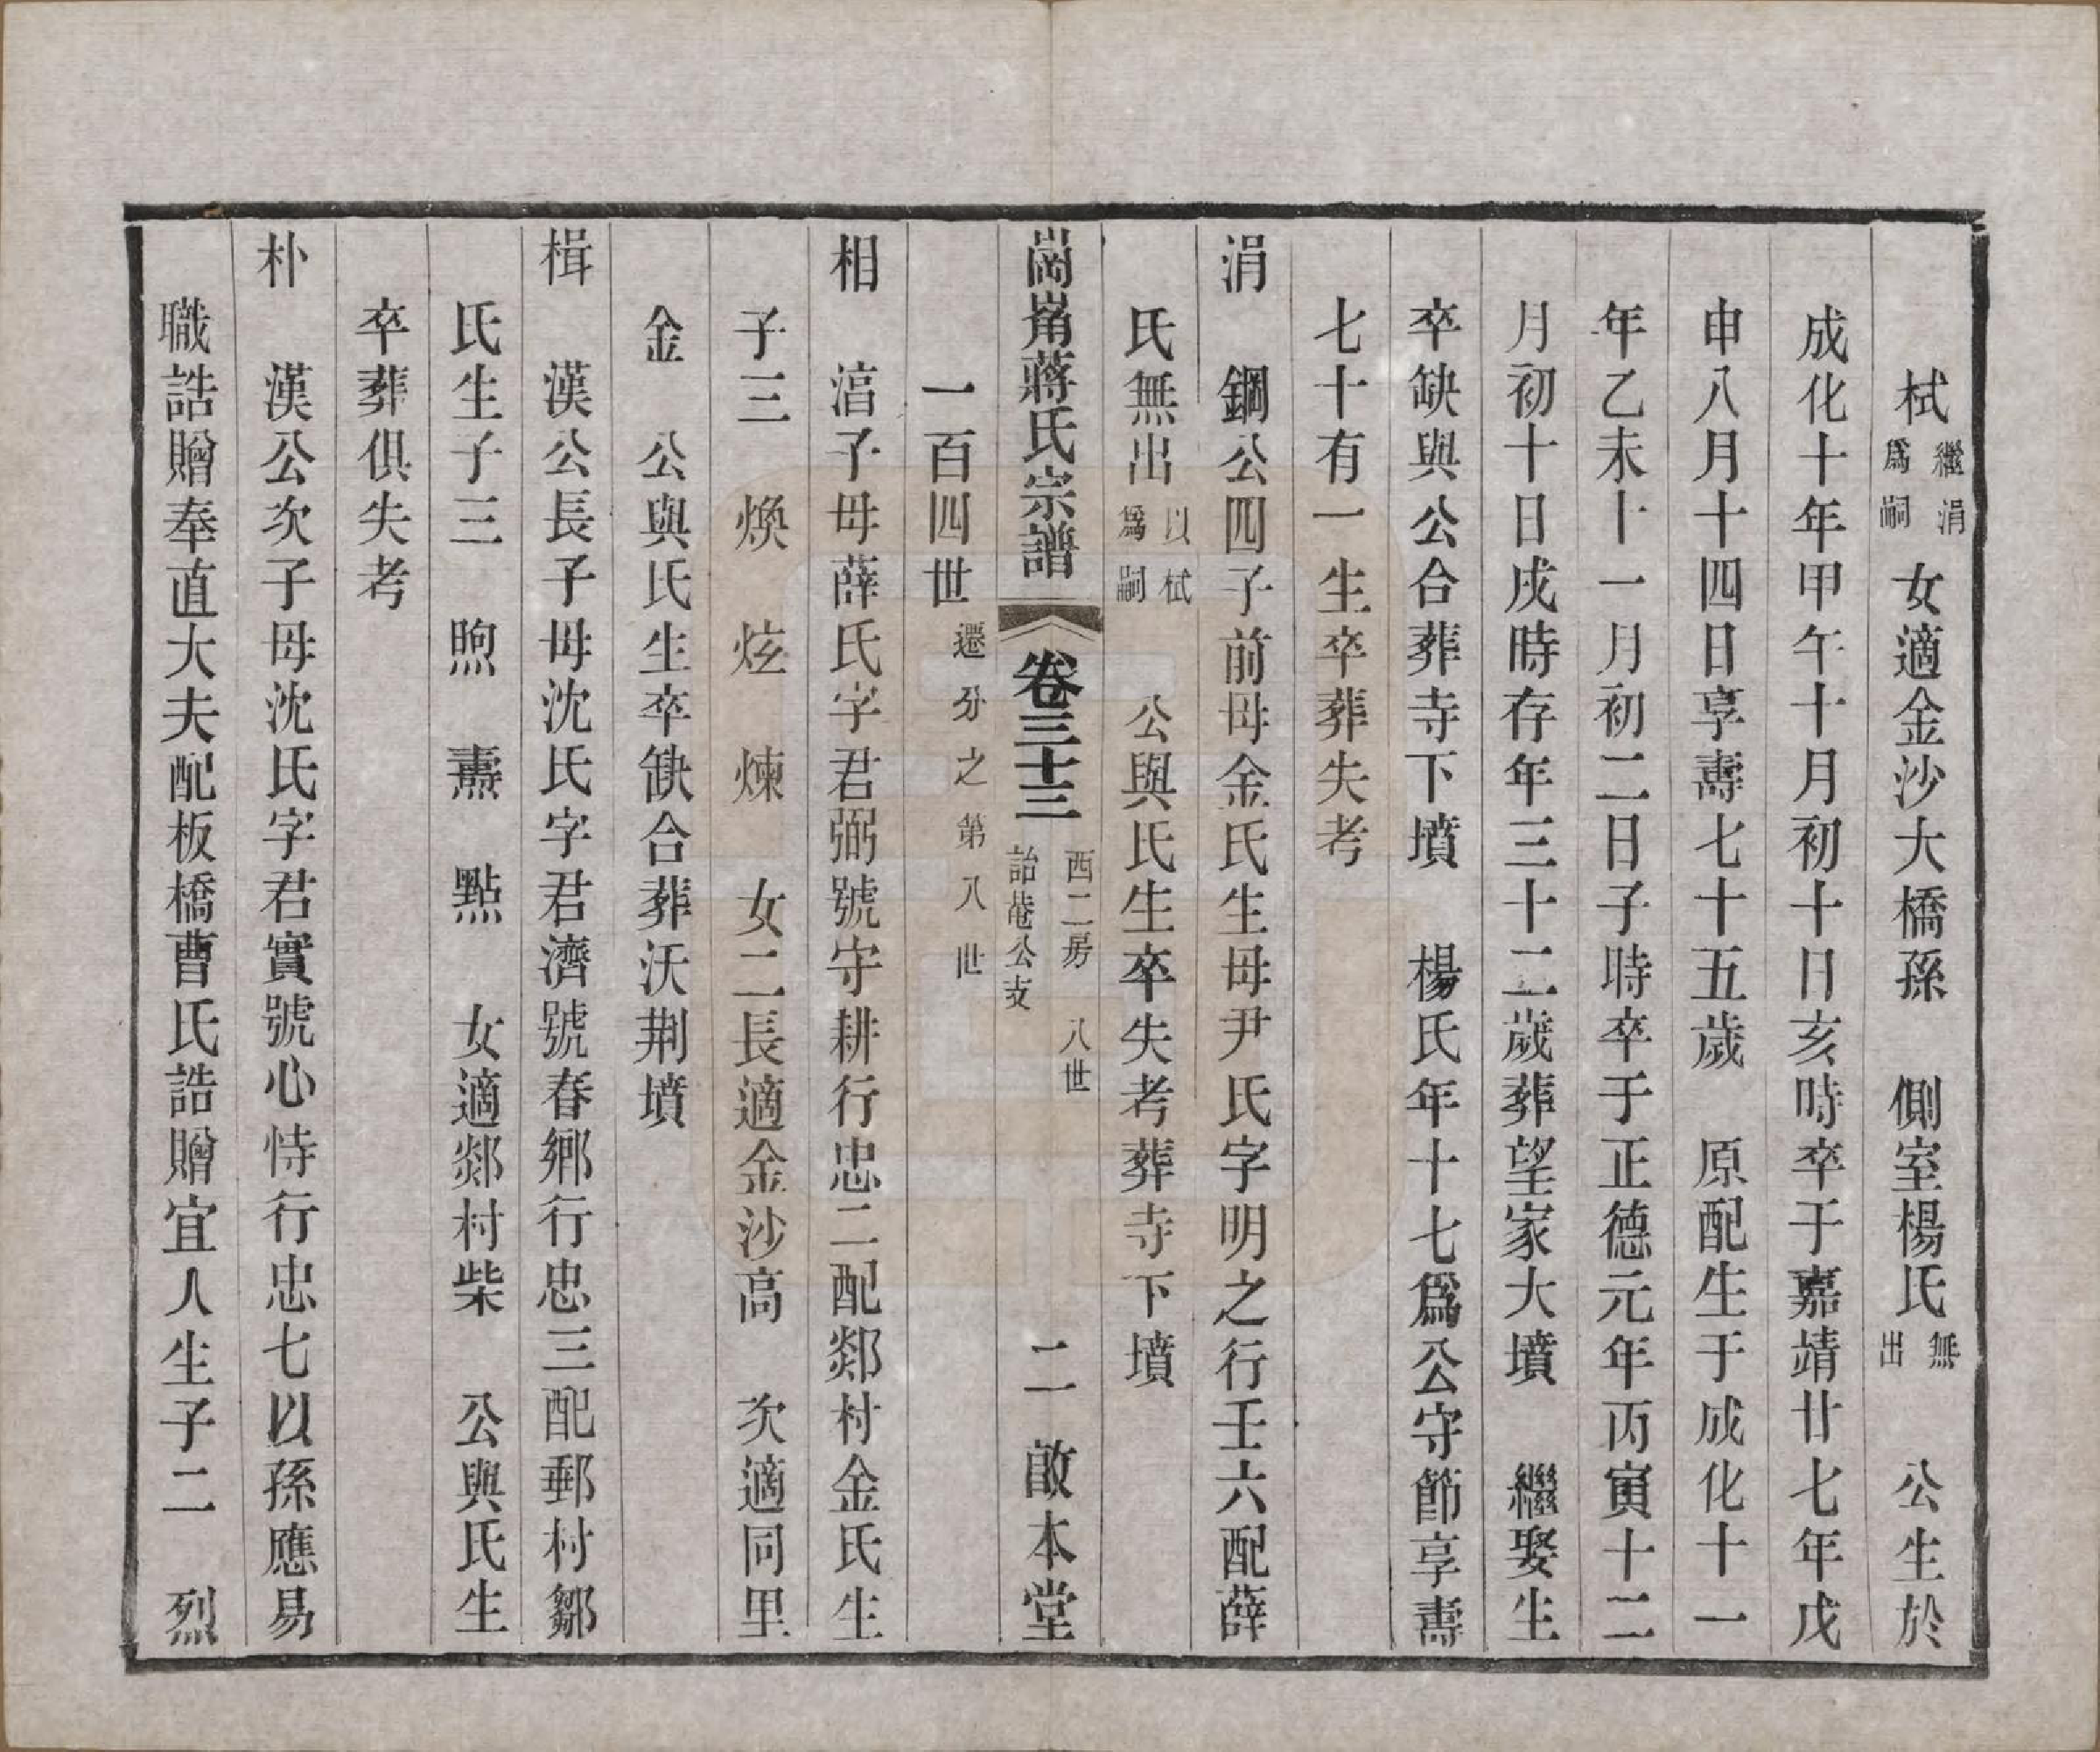 栻繼涓爲嗣 女適金沙大橋孫 側室楊氏無出 公生於
成化十年甲午十月初十日亥時卒于嘉靖廿七年戊
申八月十四日享壽七十五歲 原配生于成化十一
年乙未十一月初二日子時卒于正德元年丙寅十二
月初十日戌時存年三十二歲葬望家大墳 繼娶生
卒缺與公合葬寺下墳 楊氏年十七爲公守節享壽
七十有一生卒葬失考
涓 鋼公四子前母金氏生母尹氏字明之行壬六配薛
氏無出以栻爲嗣 公與氏生卒失考葬寺下墳
崗𡹬蔣氏宗譜 卷三十三 西二房 八世 詒菴公支 二 敢本堂
一百四世遷分之第八世
相 湻子母薛氏字君弼號守耕行忠二配郯村金氏生
子三 煥 炫 煉 女二長適金沙高 次適同里
金 公與氏生卒缺合葬沃荆墳
楫 漢公長子母沈氏字君濟號春鄉行忠三配郵村鄒
氏生子三 煦 燾 點 女適郯村柴 公與氏生
卒葬俱失考
朴 漢公次子母沈氏字君實號心恃行忠七以孫應易
職誥贈奉直大夫配板橋曹氏誥贈宜人生子二 烈